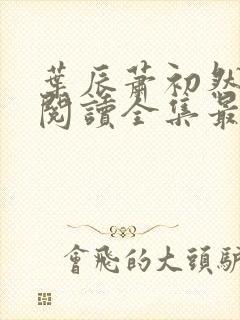 葉辰蕭初然
閱讀全集最
會飛的大頭驢